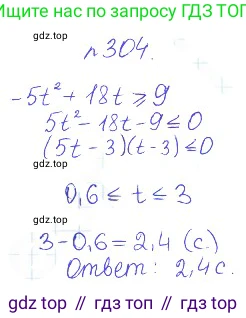 Ищите нас по запросу ГДЗ ТОП
gdz.top
n 304.
-5t² + 18t ⩾ 9
5t² - 18t - 9 ≤ 0
(5t - 3)(t - 3) ≤ 0
0,6 ≤ t ≤ 3
gdz.top
3 - 0,6 = 2,4 (с.)
Ответ: 2,4 с.
gdz.top // gdz.top // gdz.top